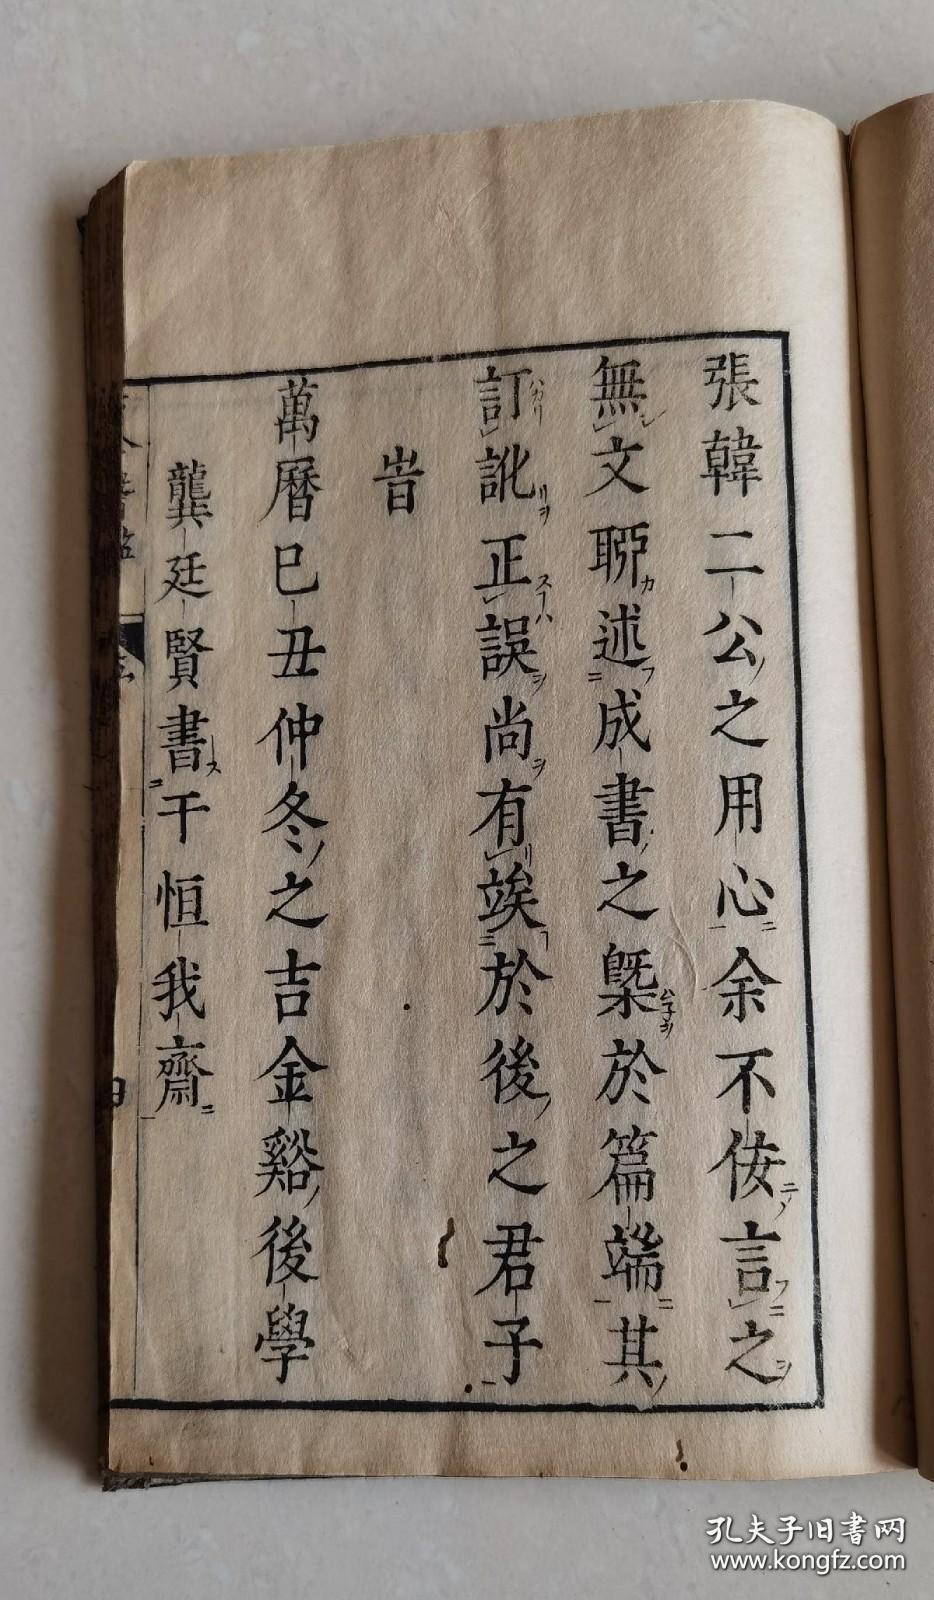 張韓二公之用心余不侫言之
無文聊述成書之槩於篇端其
訂訛正誤尚有竢於後之君子
旹
萬曆己丑仲冬之吉金谿後學
龔廷賢書于恒我齋
孔夫子旧書网
www.kongfz.com